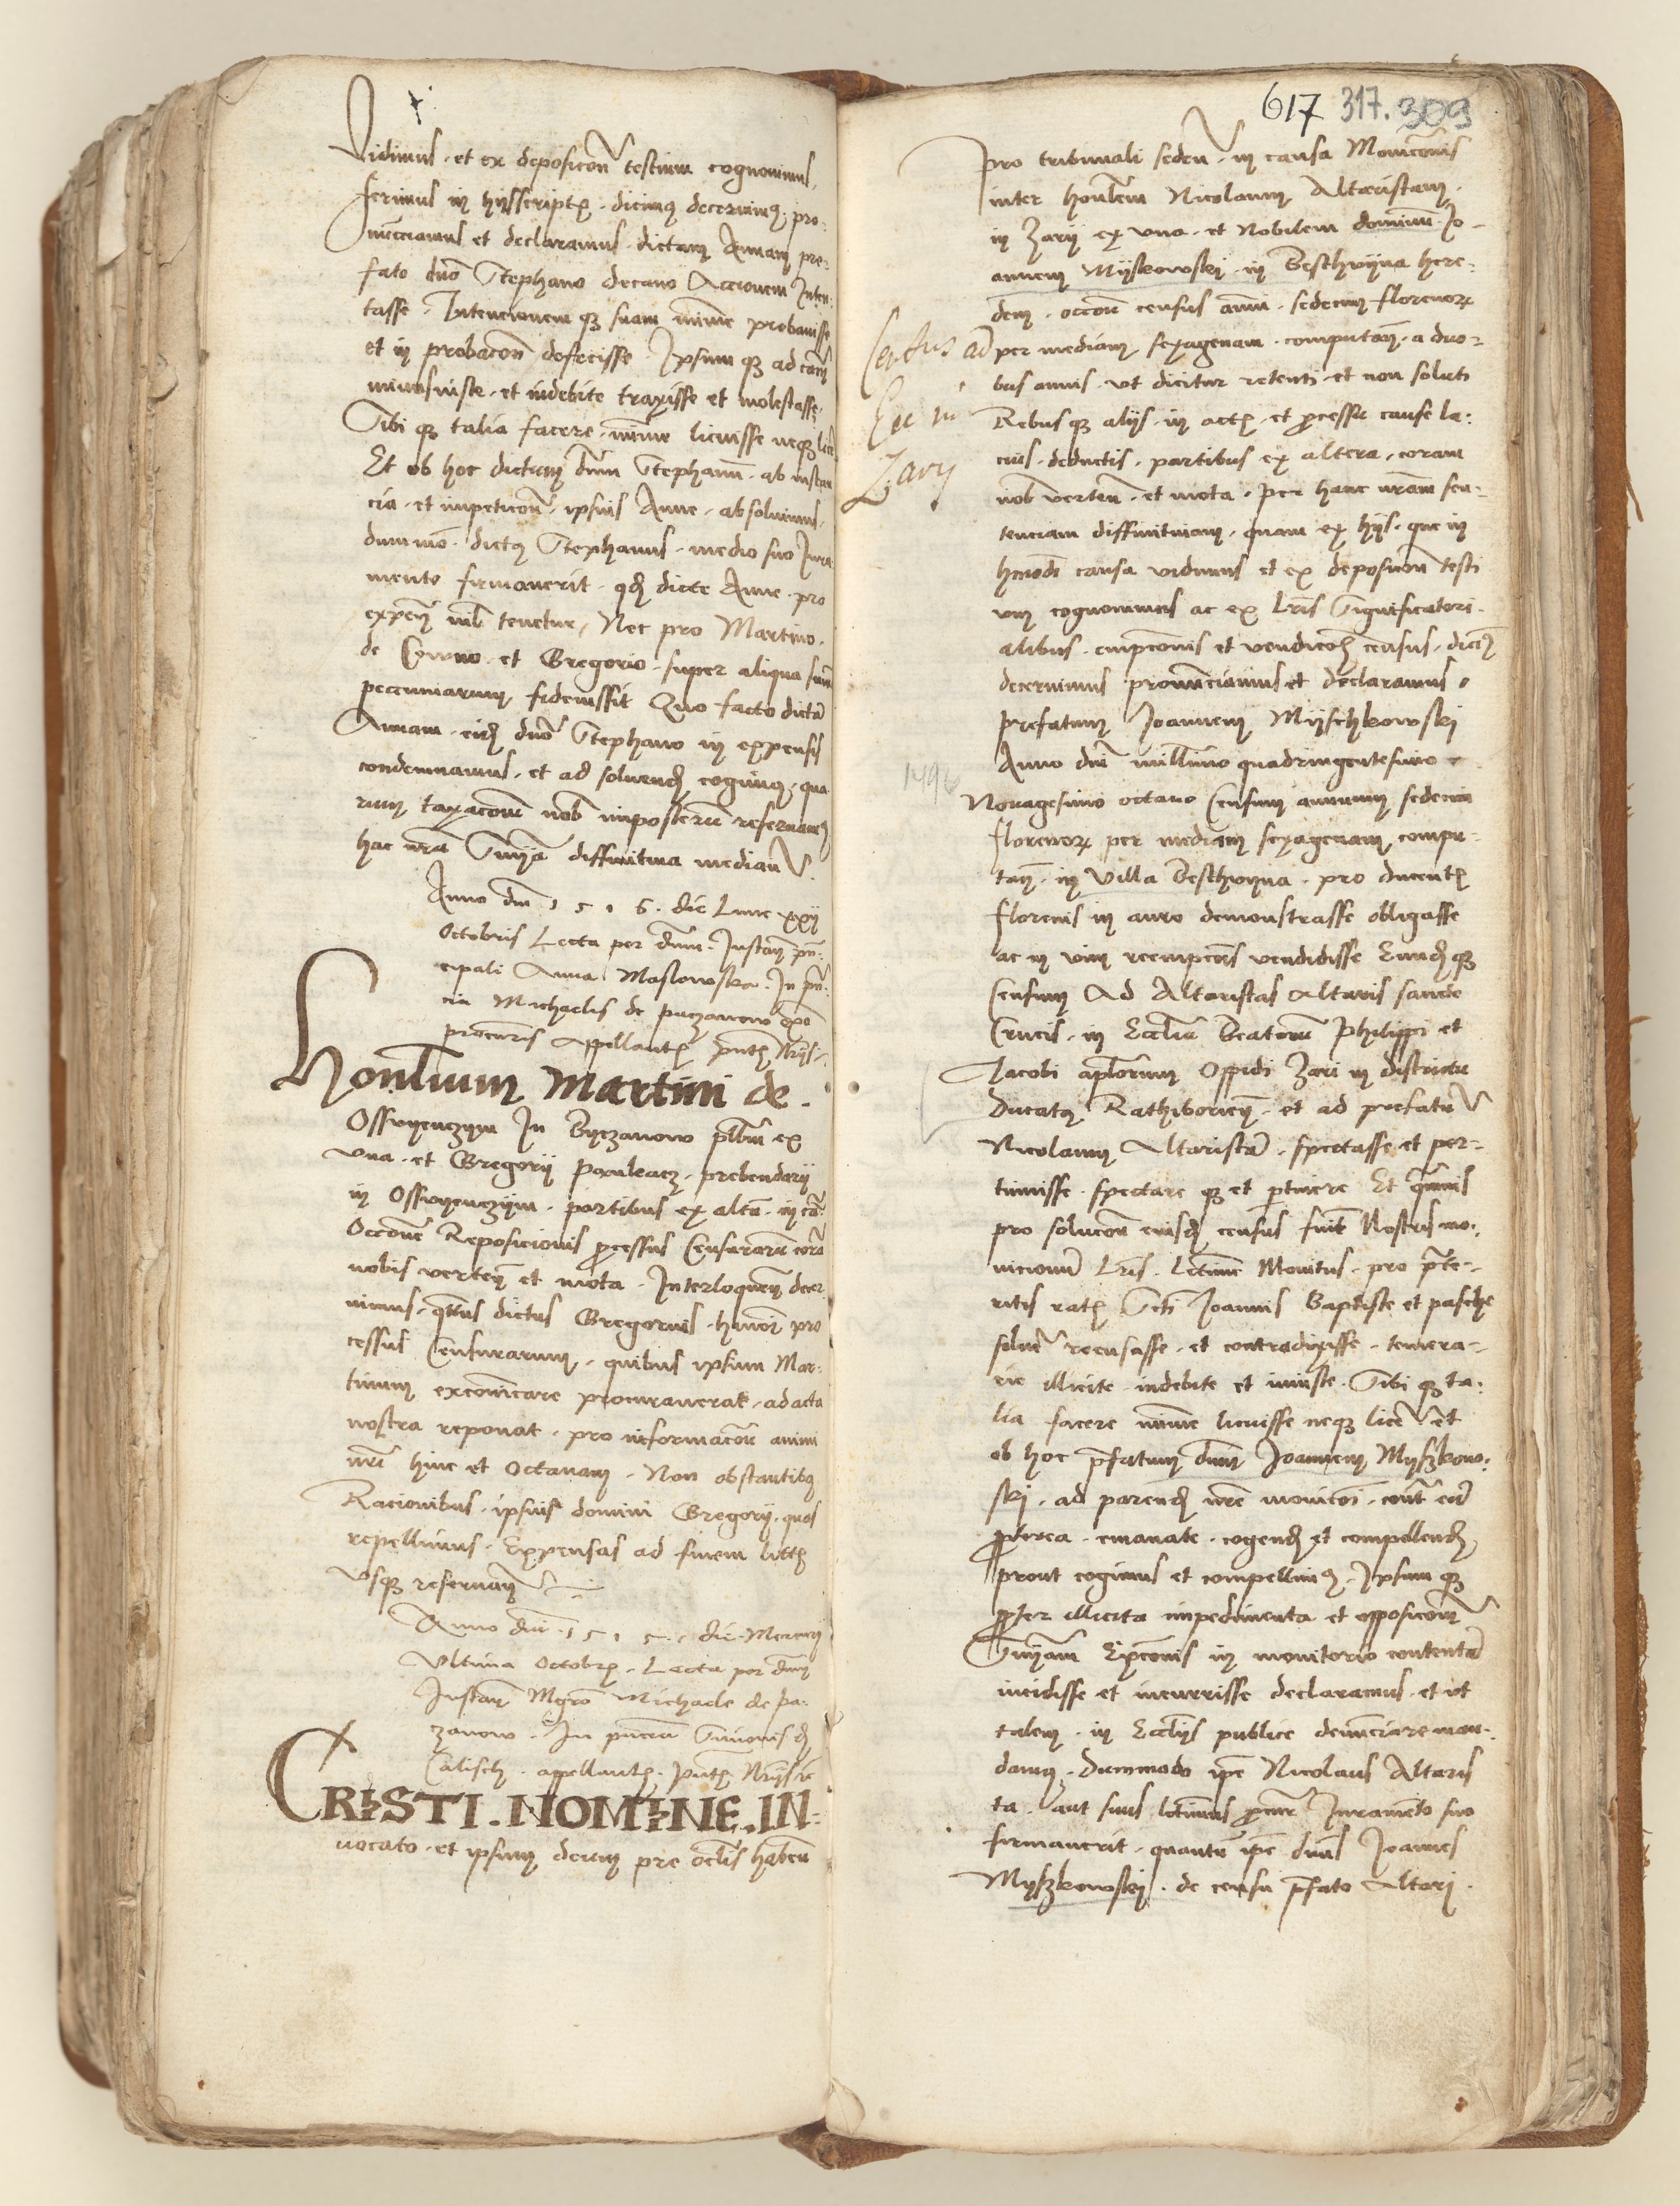 Vidimus · et ex deposicõn testium cognovimus,
ferimus in hysscriptis · dicimus decernimus · pro-
nũcciamus et declaramus · dictam Annam pre-
fato dno Stephano decano Accionem Inten-
tasse · Intencionemqꝫ suam minime probavisse
et in probacõn defecisse · Ipsumqꝫ ad cam
minusiuste · et indebite traxisse et molestasse,
Sibiqꝫ talia facere · minime licuisse neqꝫ lic
Et ob hoc dictum dnm Stephanũ · ab instan
cia · et impeticõn · ipsius Anne · absolvimus,
dummo · dictus Stephanus · medio suo Jura
mento firmaverit · qd dicte Anne · pro
expens nil tenetur, Nec pro Martino ·
de et Gregorio · super aliqua sum
pecuniarum fideiussit Quo facto dictã
Annam · eidem dno Stephano in expensis
condemnamus · et ad solvend cogimus · qua
rum taxacõem nob imposterũ reservam
hac nrã Snia diffinitiva median
Anno dni 1516 · die Lune xxij
Octobris Lecta per dnm · Instan prin
cipali Anna Maslowska · In pñ
cia Michaelis de
procuris Appellant pntibus
Honlium Martini de ·
Osswyenczym In Byczanow plbm ex
una · et Gregorij prebendarij
in Osswyenczym · partibus ex altã · in cã
Occõne Reposicionis processus Censurarũ corã
nobis verten et mota · Interloquen decer
nimus · qtus dictus Gregorius · hmõi pro
cessus Censurarum · quibus ipsum Mar-
tinum excõicare procuraverat · ad acta
nostra reponat · pro informacõn animi
nri hinc et Octavam · Non obstantibꝫ
Racionibus · ipsius domini Gregorij · quas
repellimus · Expensas ad finem littis
Usqꝫ reservan
Anno dni · 1515 · die · Mercurij
Ultima Octobris · Lecta per dnm
Instan Mgro Michaele de pa-
zanow · In pncia Simonis de
Calisch · appellantis · pntibus
CRISTI · NOMINE · IN-
vocato · et ipsum deum pre oclis haben
617 317. 309
pro tribunali seden · in causa Monicõnis
inter honlem Nicolaum Altaristam ·
in Zarij ex una · et Nobilem dominum Jo-
annem Myskowski · in Beschwyna here-
dem · occõn census annui · sedecim florenorꝫ
per mediam sexagenam · computan · a duo-
bus annis · ut dicitur retenti · et non soluti
Rebusqꝫ alijs · in actis · et processu cause la-
cius · deductis · partibus ex altera · coram
nob verten · et mota · per hanc nram sen-
tenciam diffinitivam · quam ex hijs · que in
hmodi causa vidimus et ex deposicõn testi
um cognovimus ac ex Lris Significatori-
alibus · empcõnis et vendicõis census · dicim
decernimus pronunciamus et declaramus ·
prefatum Joannem Myschkowski
Anno dni millimo quadringentesimo ·
Nonagesimo octavo Censum annuum sedecim
florenorꝫ per mediam sexagenam compu-
tan · in Villa Beschwyna · pro ducentis
florenis in auro demonstrasse obligasse
ac in vim reempcõis vendidisse Eundemqꝫ
Censum Ad Altaristas Altaris sancte
Crucis · in Ecclia Beatorũ Philippi et
Jacobi aplorum Oppidi Zari in districtu
Ducatus Rathiborien · et ad prefatũ
Nicolaum Altaristã · spectasse et per-
tinuisse · spectareqꝫ et ptinere Et qmvis
pro solucõn eiusdem census fuit Nostris mo-
nicionũ Lris · Lctime Monitus · pro prete-
ritis ratis Scti Joannis Baptiste et pasche
solver recusasse · et contradixisse · temera-
rie illicite · indebite et iniuste · Sibiqꝫ ta-
lia facere minime licuisse neqꝫ licer et
ob hoc prefatum dnm Joannem Myszkow-
ski · ad parend nre monicõi · cont eũ
pterea · emanate · cogend et compellend,
prout cogimus et compellimus · Ipsumqꝫ
ppter illicita impedimenta et opposicõnẽ
Sniam Excõnis in monitorio contentã
incidisse et incurrisse declaramus · et ut
talem · in Eccliis publice denũciare man-
damus · Dummodo ipe Nicolaus Altaris
ta · aut suus lctimus procur Juramẽto suo
firmaverit · quantũ ipe dnus Joannes
Myszkowskij · de censu prefato Altari ·
Census ad
Zary
149